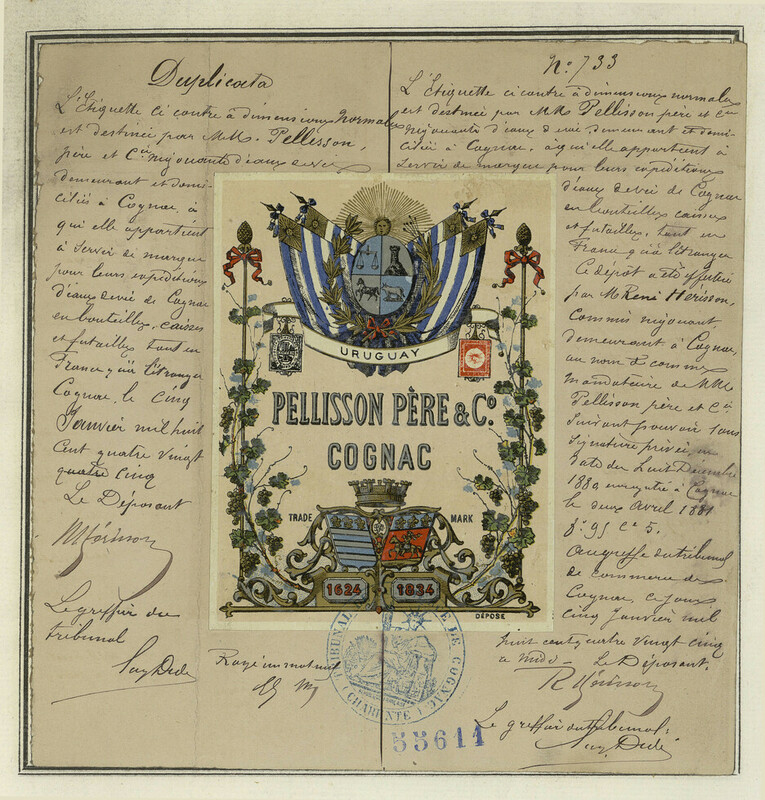 Duplicata
L'Etiquette ci contre à dimensions normales
est destinée par M.M. Pellisson,
père et Cie négociants d'eaux de vie
demeurant et domi-
ciliés à Cognac, à
qui elle appartient
à servir de marque
pour leurs expéditions
d'eaux de vie de Cognac
en bouteilles, caisses
et futailles, tant en
France qu'à l'étranger
Cognac, le cinq
Janvier mil huit
cent quatre vingt
quatre cinq
Le Déposant
Le greffier du
tribunal
No 733
L'Etiquette ci contre à dimensions normales
est destinée par MM Pellisson père et Cie
négociants d'eaux de vie, demeurant et domi-
ciliés à Cognac, à qui elle appartient à
servir de marque pour leurs expéditions
d'eaux de vie de Cognac
en bouteilles, caisses
et futailles, tant en
France qu'à l'étranger
Ce dépôt a été effectué
par M René Hérisson,
Commis négociant,
demeurant à Cognac,
au nom & comme
mandataire de MM
Pellisson père et Cie
suivant pouvoir sous
signature privée, en
date du huit Décembre
1880, enregistré à Cognac
le deux Avril 1881
fo 95 Ce 5.
Au greffe du tribunal
de commerce de
Cognac, ce jour
cinq Janvier mil
huit cent quatre vingt cinq
à midi - Le Déposant.
R Hérisson
Le greffier du tribunal:
URUGUAY
PELLISSON PÈRE & Co.
COGNAC
TRADE MARK
1624 1834
DÉPOSÉ
Rayé un mot nul
COGNAC
(CHARENTE)
55611